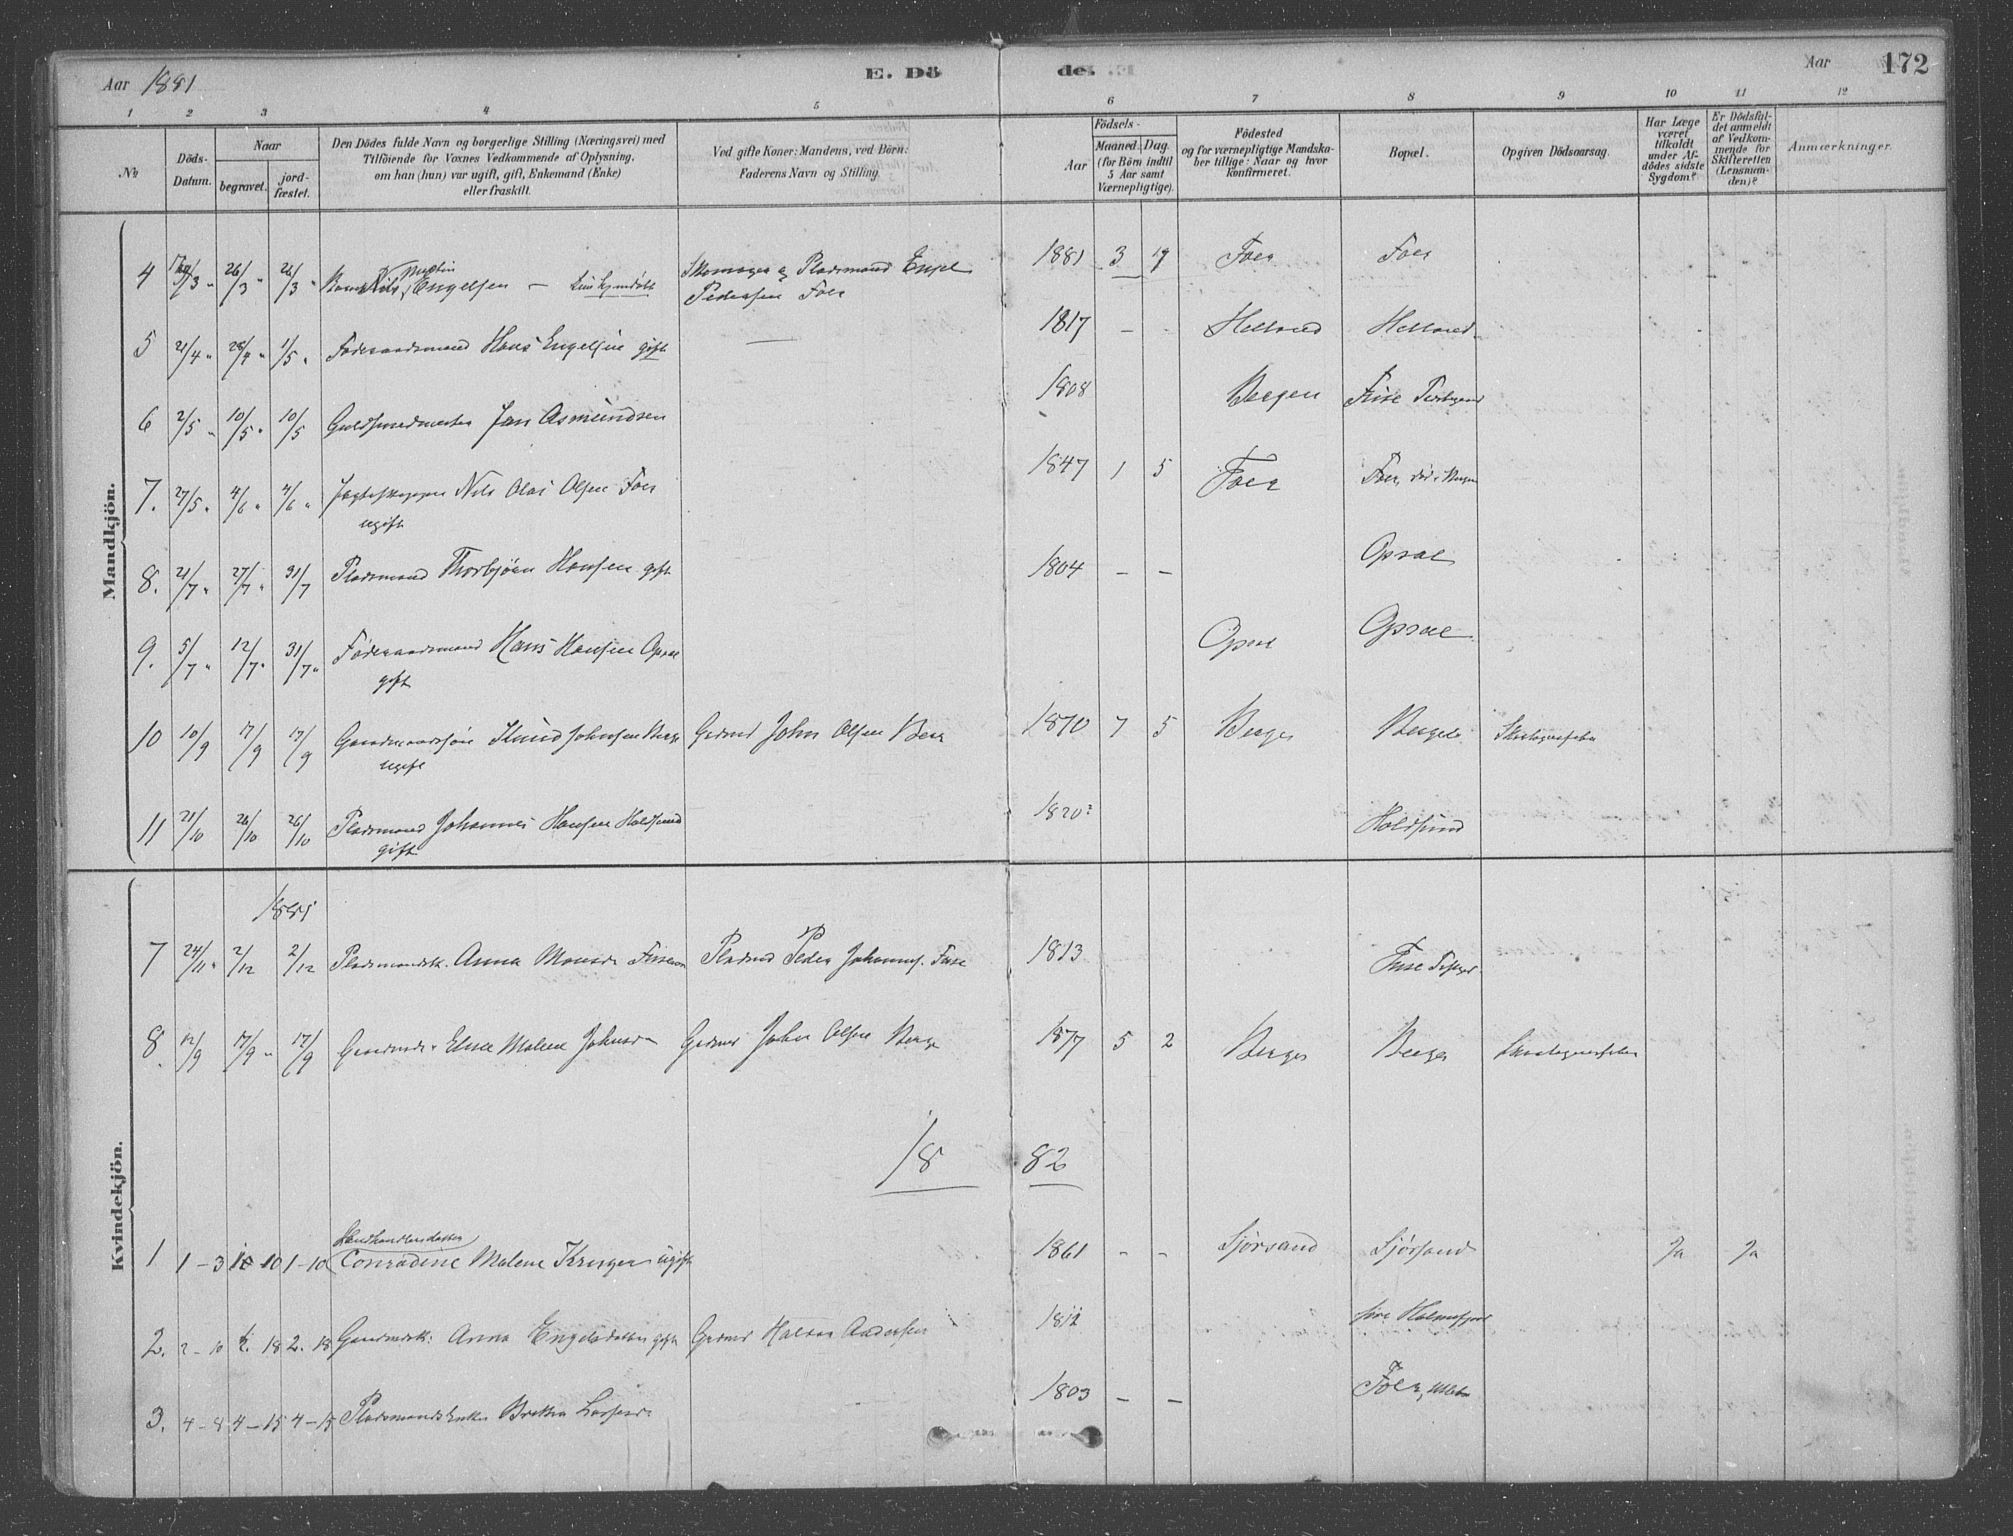 Aar 1881
E. Dö
de.
Aar
172
1 2 3 4 5 6 7 8 9 10 11 12
No
Döds-Datum.
Naar
begravet.
jord-fæstet.
Den Dödes fulde Navn og borgerlige Stilling (Næringsvei) med
Tilföiende for Voxnes Vedkommende af Oplysning,
om han (hun) var ugift, gift, Enkemand (Enke)
eller fraskilt.
Ved gifte Koner: Mandens, ved Börn:
Faderens Navn og Stilling.
Födsels-
Aar
Maaned. Dag.
(for Börn indtil
5 Aar samt
Værnepligtige).
Födested
og for værnepligtige Mandska-
ber tillige: Naar og hvor
konfirmeret.
Bopæl.
Opgiven Dödsaarsag.
Har Læge
været
tilkaldt
under Af-
dödes sidste
Sygdom?
Er Dödsfal-
det anmeldt
af Vedkom-
mende for
Skifteretten
(Lensman-
den)?
Anmærkninger.
Mandkjön.
4 26/3 " 26/3 " Nils Martin Engelsen — Skomager & Pladsmand Engel 1881 3 19 Foer Foer
Pedersen Foer
5 21/4 " 28/4 " 1/5 " Föderaadsmand Hans Engelsen gift — 1817 — Helland Helland
6 2/5 " 10/5 " 10/5 Guldsmedmester Jan Asmundsen 1808 Bergen Fuse
7. 27/5 " 4/6 " 4/6 " Jagteskipper Nils Olai Olsen Foer 1847 1 5 Foer Foer, död i Bergen
ugift
8. 21/7 " 27/7 " 31/7 Pladsmand Thorbjörn Hansen gift 1804 — — Opsal
9. 5/7 " 12/7 " 31/7 " Föderaadsmand Hans Hansen Opsal Opsal Opsal
gift
10 10/9 17/9 17/9 Knud Johnsen Berge Grdmd John Olsen Berge 1870 7 5 Berge Berge Skarlagensfeber
ugift
11 21/10 26/10 26/10 Pladsmand Johannes Hansen Holdsund 1820? Holdsund
gift
Kvindekjön.
1881
7 24/11 " 2/12 2/12 Pladsmandsk. Anna Monsdr Pladsmd Peder Johanness. Fuse 1813 Fuse
8. 12/9 17/9 " 17/9 Malene Johnsdr Grdmd John Olsen Berge 1877 5 2 Berge Berge Skarlagensfeber
18 82
Landhandlersdatter
1 1-3 10 1-10 Conradine Malene Krüger ugift 1861 - - Sjörsand Sjörsand Ja Ja
2. 2-10 2-18 Gaardmdsk: Anna Engelsdatter gift Grdmd Halvor Andersen 1812
3. 4-8 4-15 4-15 Pladsmandsenke Larsdr 1803 — — Foer,